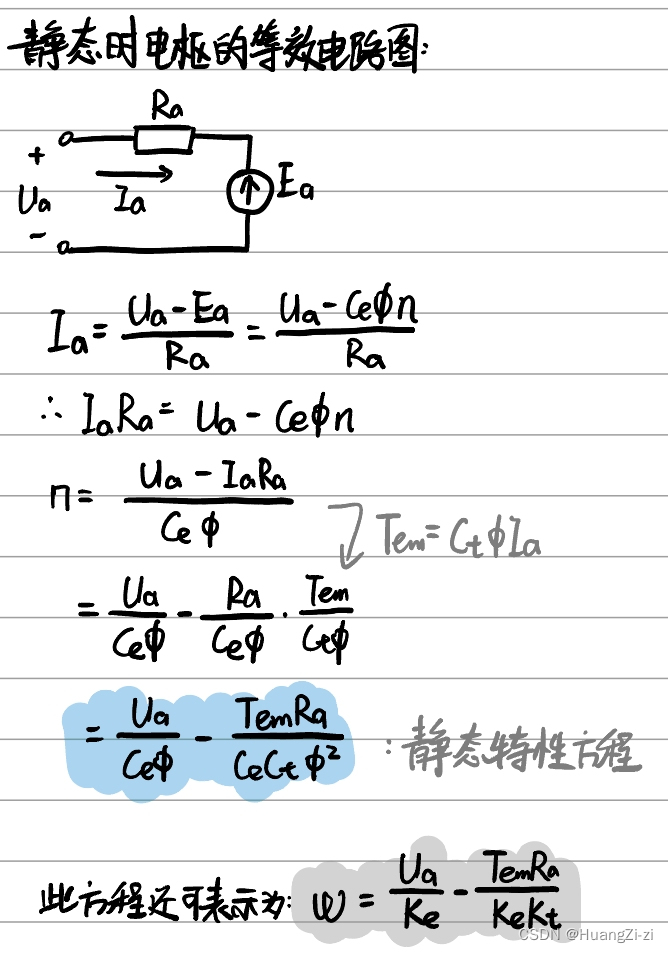 静态时电枢的等效电路图:
Ra
+
Ua
-
Ia
Ea
Ia = (Ua - Ea)/Ra = (Ua - Ceϕn)/Ra
∴ IaRa = Ua - Ceϕn
n = (Ua - IaRa)/(Ceϕ)
Tem = CtϕIa
= Ua/(Ceϕ) - Ra/(Ceϕ) · Tem/(Ctϕ)
= Ua/(Ceϕ) - TemRa/(CeCtϕ²) : 静态特性方程
此方程还可表示为: ω = Ua/Ke - TemRa/(KeKt)
CSDN @HuangZi-zi